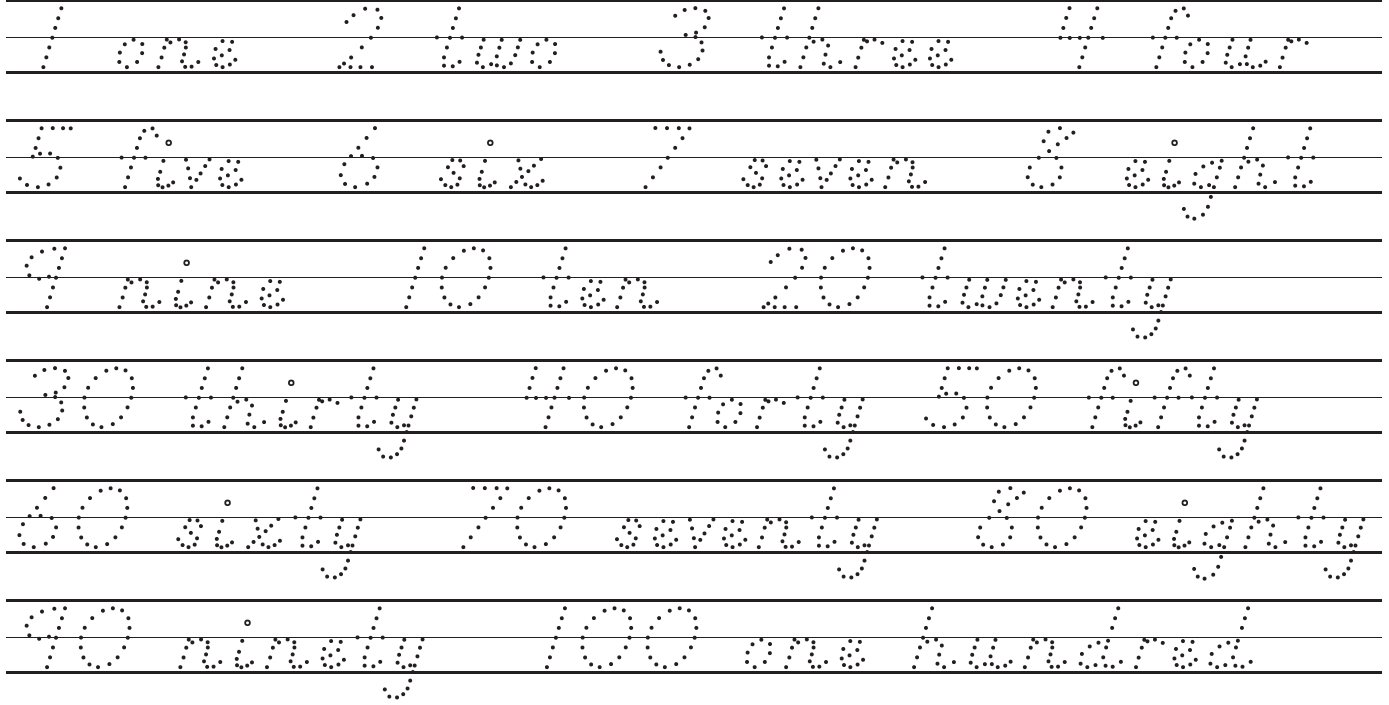 1 one 2 two 3 three 4 four
5 five 6 six 7 seven 8 eight
9 nine 10 ten 20 twenty
30 thirty 40 forty 50 fifty
60 sixty 70 seventy 80 eighty
90 ninety 100 one hundred